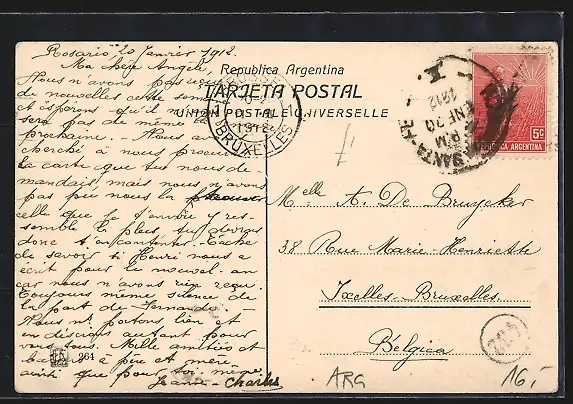 Rosario 20 Janvier 1912.
Ma chère Angèle,
Nous n'avons pas reçu
de nouvelles cette semaine
et espérons qu'il n'en
sera pas de même la
prochaine. Nous avons
cherché à nous procurer
la carte que tu nous de-
mandais, mais nous n'avons
pas pu nous la procurer
celle que je t'envoie y res-
semble le plus, tu devras
donc t'en contenter. Tâche
de savoir si Henri nous a
écrit pour le nouvel-an
car nous n'avons rien reçu.
Toujours même silence de
la part de Fernande.
Nous ns. portons bien et
en disons autant pour
vous tous. Mille amitiés et
baisers à père et mère
ainsi que pour toi-même
Jeanne - Charles
264
Republica Argentina
TARJETA POSTAL
UNION POSTALE UNIVERSELLE
BRUXELLES
1912
BRUXELLES
SANTA-FE
ENE 20
1912
5c
REPUBLICA ARGENTINA
Melle A. De Bruycker
38 Rue Marie-Henriette
Ixelles-Bruxelles
Bélgica
ARG
16,-